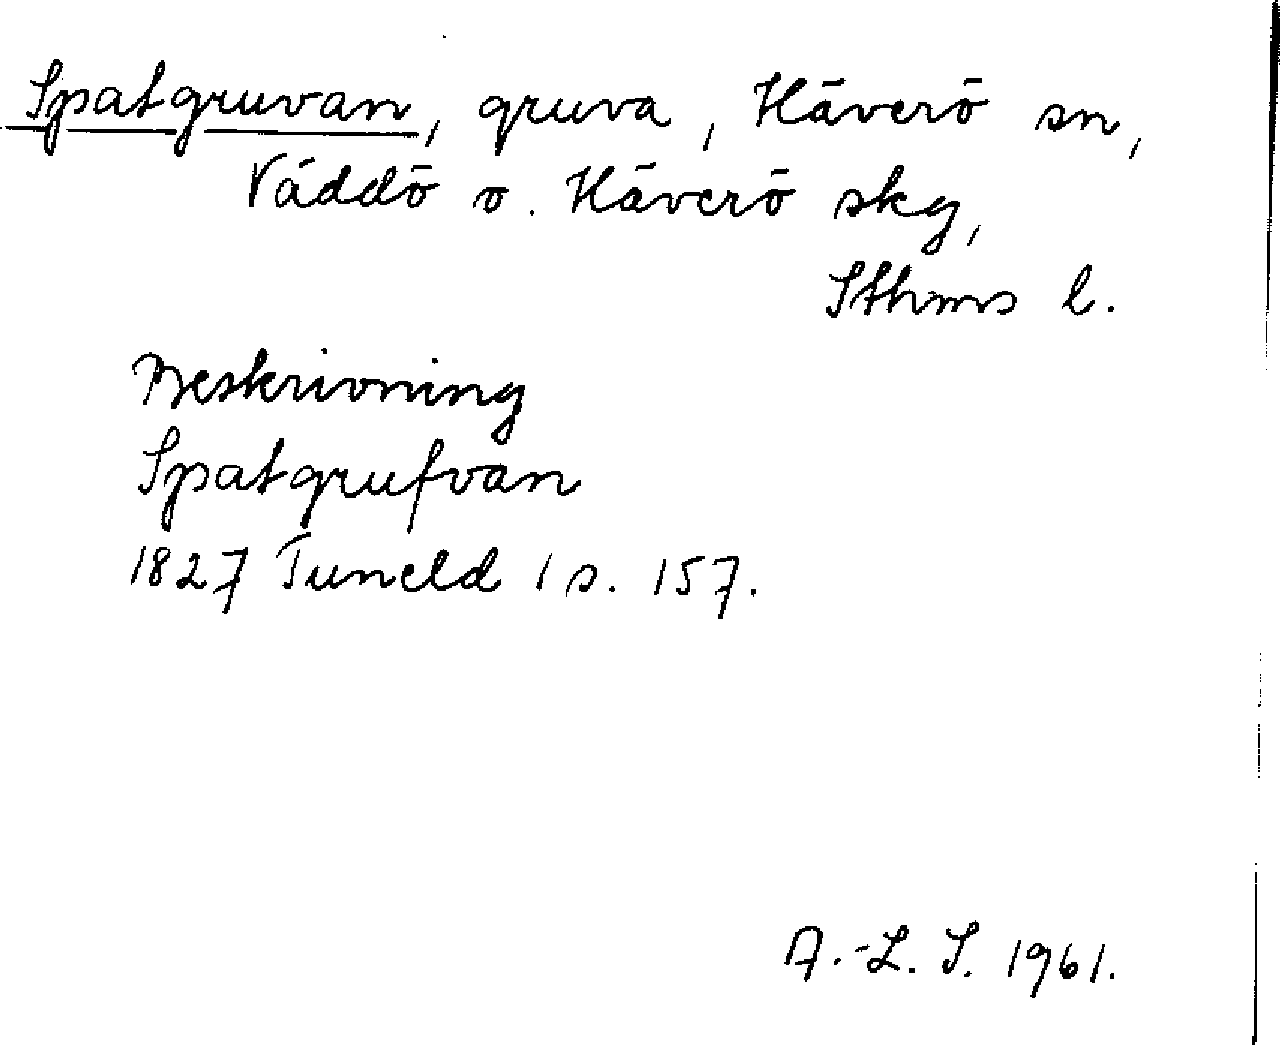 Spatgruvan, gruva, Häverö sn,
Väddö o. Häverö skg,
Sthms l.
Beskrivning
Spatgrufvan
1827 Tuneld 1 s. 157.
A.-L. S. 1961.